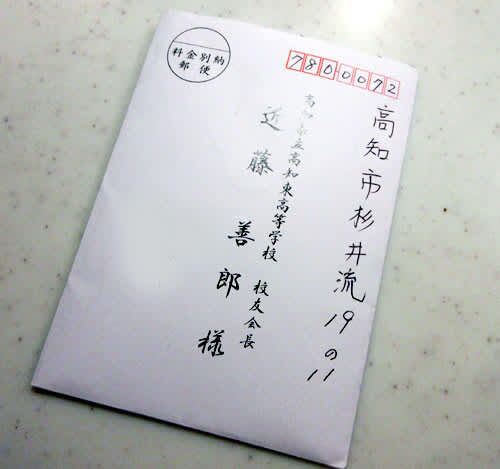 料金別納
郵便
7800072
高知市杉井流19の11
高知県立高知東高等学校
校友会長
近藤善郎様